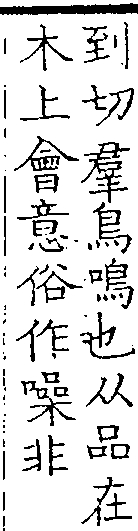 到切羣鳥鳴也从品在
木上會意俗作噪非